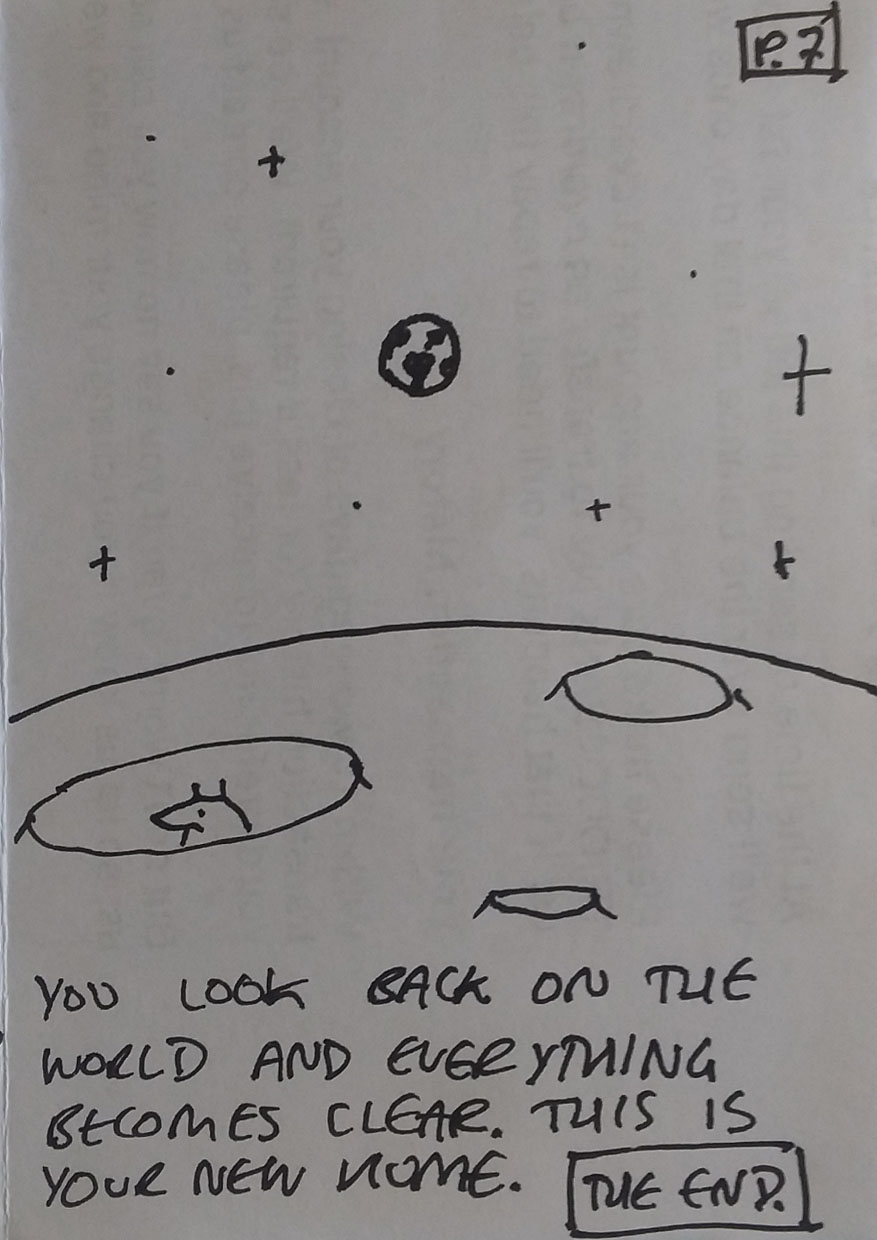 P.7
YOU LOOK BACK ON THE
WORLD AND EVERYTHING
BECOMES CLEAR. THIS IS
YOUR NEW HOME. THE END.